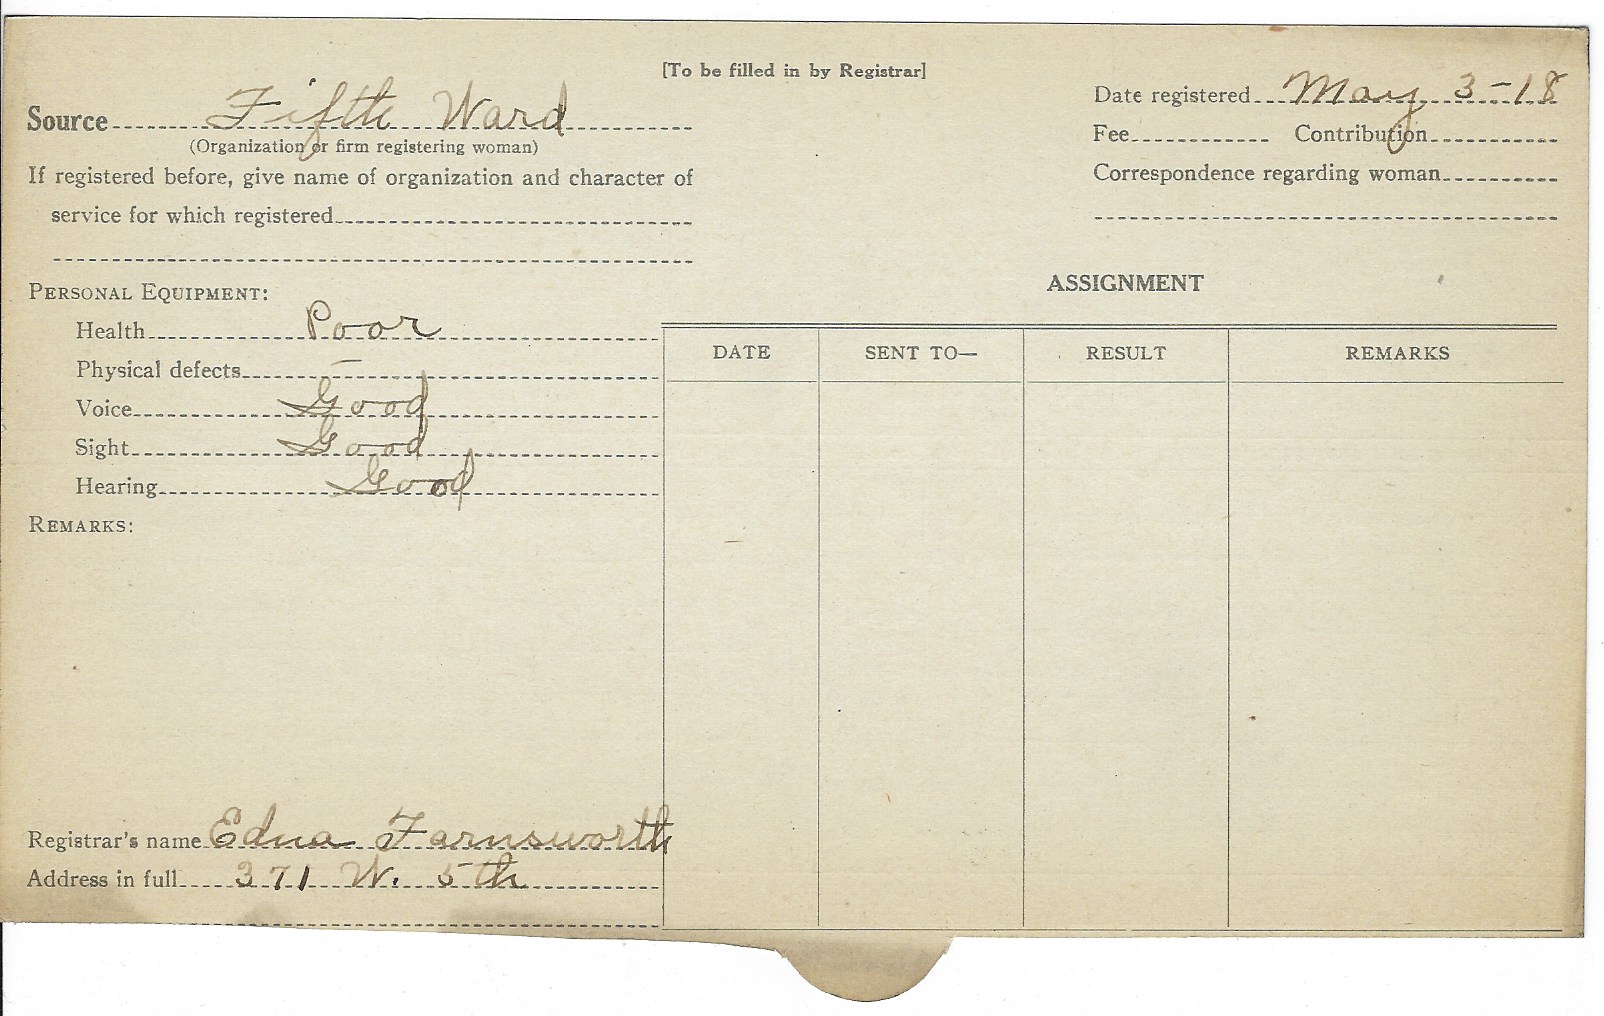 [To be filled in by Registrar]
Source Fifth Ward
(Organization or firm registering woman)
If registered before, give name of organization and character of
service for which registered
Date registered May 3-18
Fee Contribution
Correspondence regarding woman
PERSONAL EQUIPMENT:
Health Poor
Physical defects —
Voice Good
Sight Good
Hearing Good
REMARKS:
ASSIGNMENT
DATE SENT TO— RESULT REMARKS
Registrar's name Edna Farnsworth
Address in full 371 W. 5th